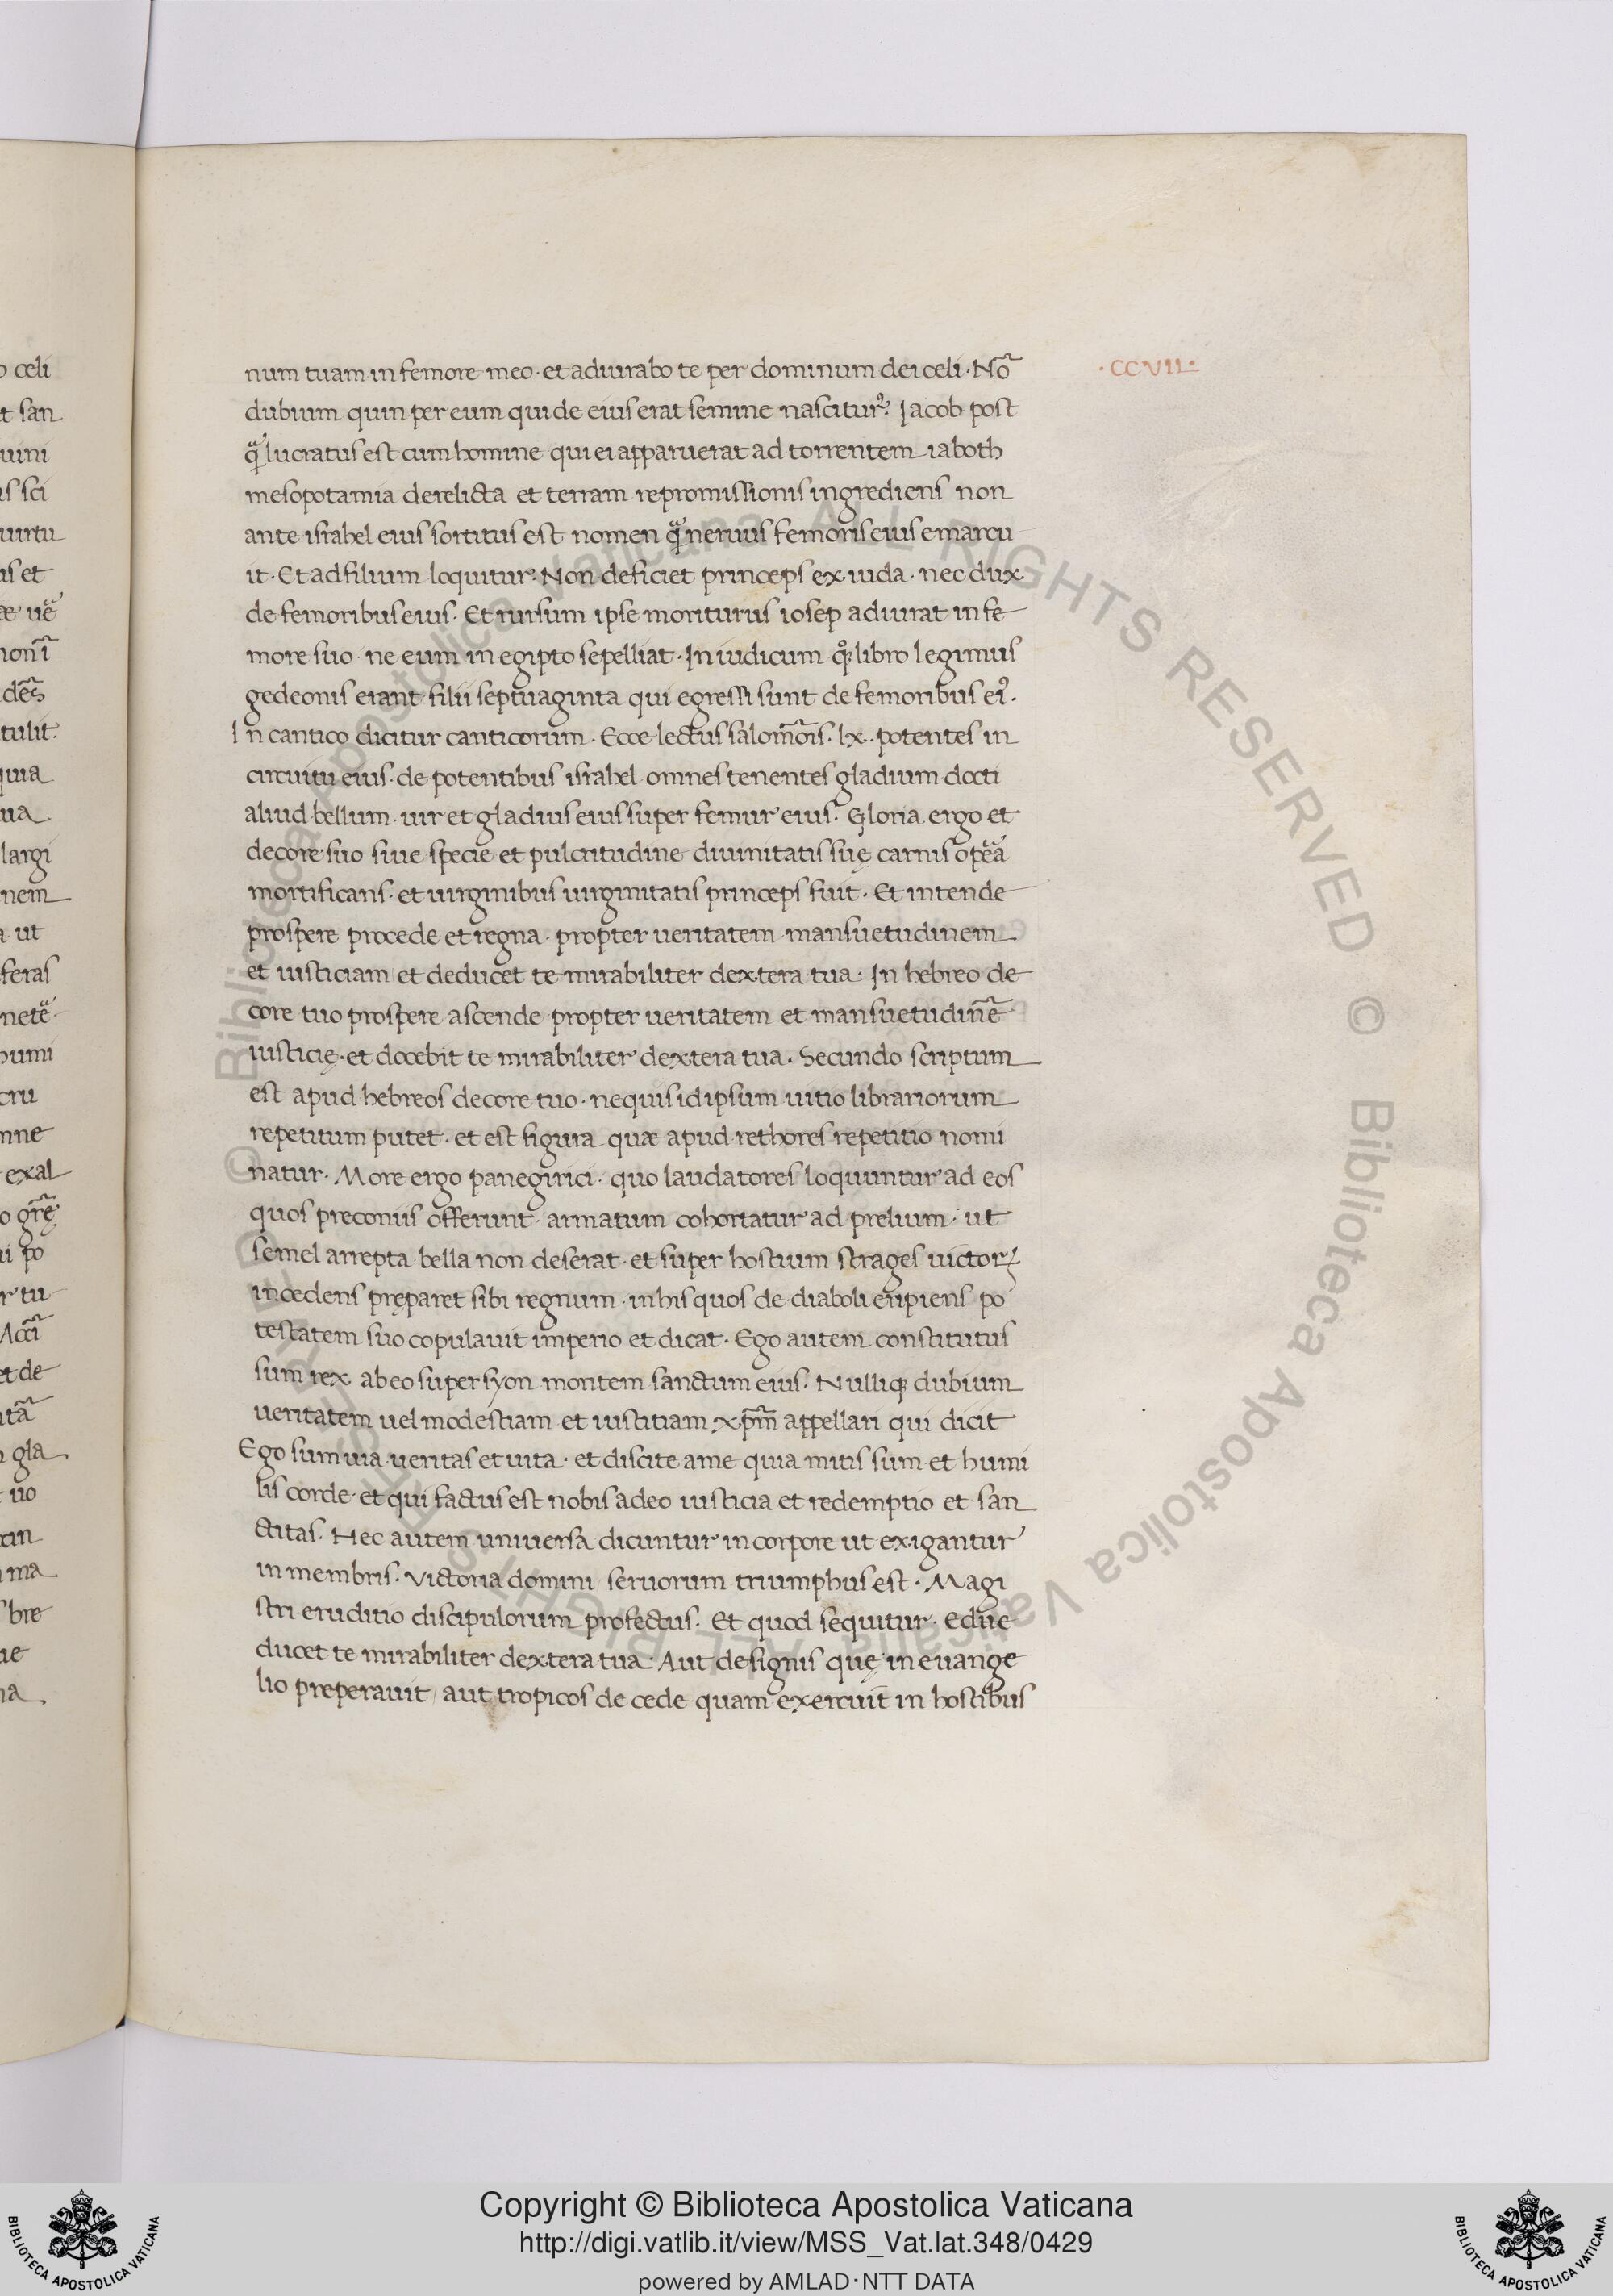 num tuam in femore meo · et adiurabo te per dominum dei celi · Nõ
dubium quin per eum qui de eius erat semine nasciturꝰ. Jacob post
q̃ luctatus est cum homine qui ei apparuerat ad torrentem iaboth
mesopotamia derelicta et terram repromissionis ingrediens non
ante israhel eius sortitus est nomen q̃ neruus femoris eius emarcu
it · Et ad filium loquitur. Non deficiet princeps ex iuda · nec dux
de femoribus eius · Et rursum ipse moriturus iosep adiurat in fe
more suo ne eum in egipto sepelliat · In iudicum qͦꝫ libro legimus
gedeonis erant filii septuaginta qui egressi sunt de femoribus eiꝰ.
In cantico dicitur canticorum · Ecce lectus salomõis · lx · potentes in
circuitu eius · de potentibus israhel omnes tenentes gladium docti
aliud bellum · uir et gladius eius super femur eius. Gloria ergo et
decore suo siue specie et pulcritudine diuinitatis suę carnis opẽa
mortificans · et uirginibus uirginitatis princeps fuit · Et intende
prospere procede et regna · propter ueritatem mansuetudinem
et iusticiam et deducet te mirabiliter dextera tua · In hebreo de
core tuo prospere ascende propter ueritatem et mansuetudinẽ
iusticię · et docebit te mirabiliter dextera tua · Secundo scriptum
est apud hebreos decore tuo · nequis idipsum uitio librariorum
repetitum putet · et est figura quæ apud rethores repetitio nomi
natur · More ergo panegirici · quo laudatores loquuntur ad eos
quos preconiis offerunt · armatum cohortatur ad prelium · ut
semel arrepta bella non deserat · et super hostium strages uictorꝫ
incedens pręparet sibi regnum · in his quos de diaboli eripiens po
testatem suo copulauit imperio et dicat · Ego autem constitutus
sum rex ab eo super syon montem sanctum eius. Nulliqꝫ dubium
ueritatem uel modestiam et iustitiam xp̃m appellari qui dicit
Ego sum uia ueritas et uita · et discite a me quia mitis sum et humi
lis corde · et qui factus est nobis a deo iusticia et redemptio et san
ctitas. Hec autem uniuersa dicuntur in corpore ut exigantur
in membris · Victoria domini seruorum triumphus est · Magi
stri eruditio discipulorum profectus. Et quod sequitur · edue
ducet te mirabiliter dextera tua · Aut de signis quę in euange
lio preperauit aut tropicos de cede quam exercuit in hostibus
· CCVII ·
Copyright © Biblioteca Apostolica Vaticana
http://digi.vatlib.it/view/MSS_Vat.lat.348/0429
powered by AMLAD · NTT DATA
BIBLIOTECA APOSTOLICA VATICANA
BIBLIOTECA APOSTOLICA VATICANA